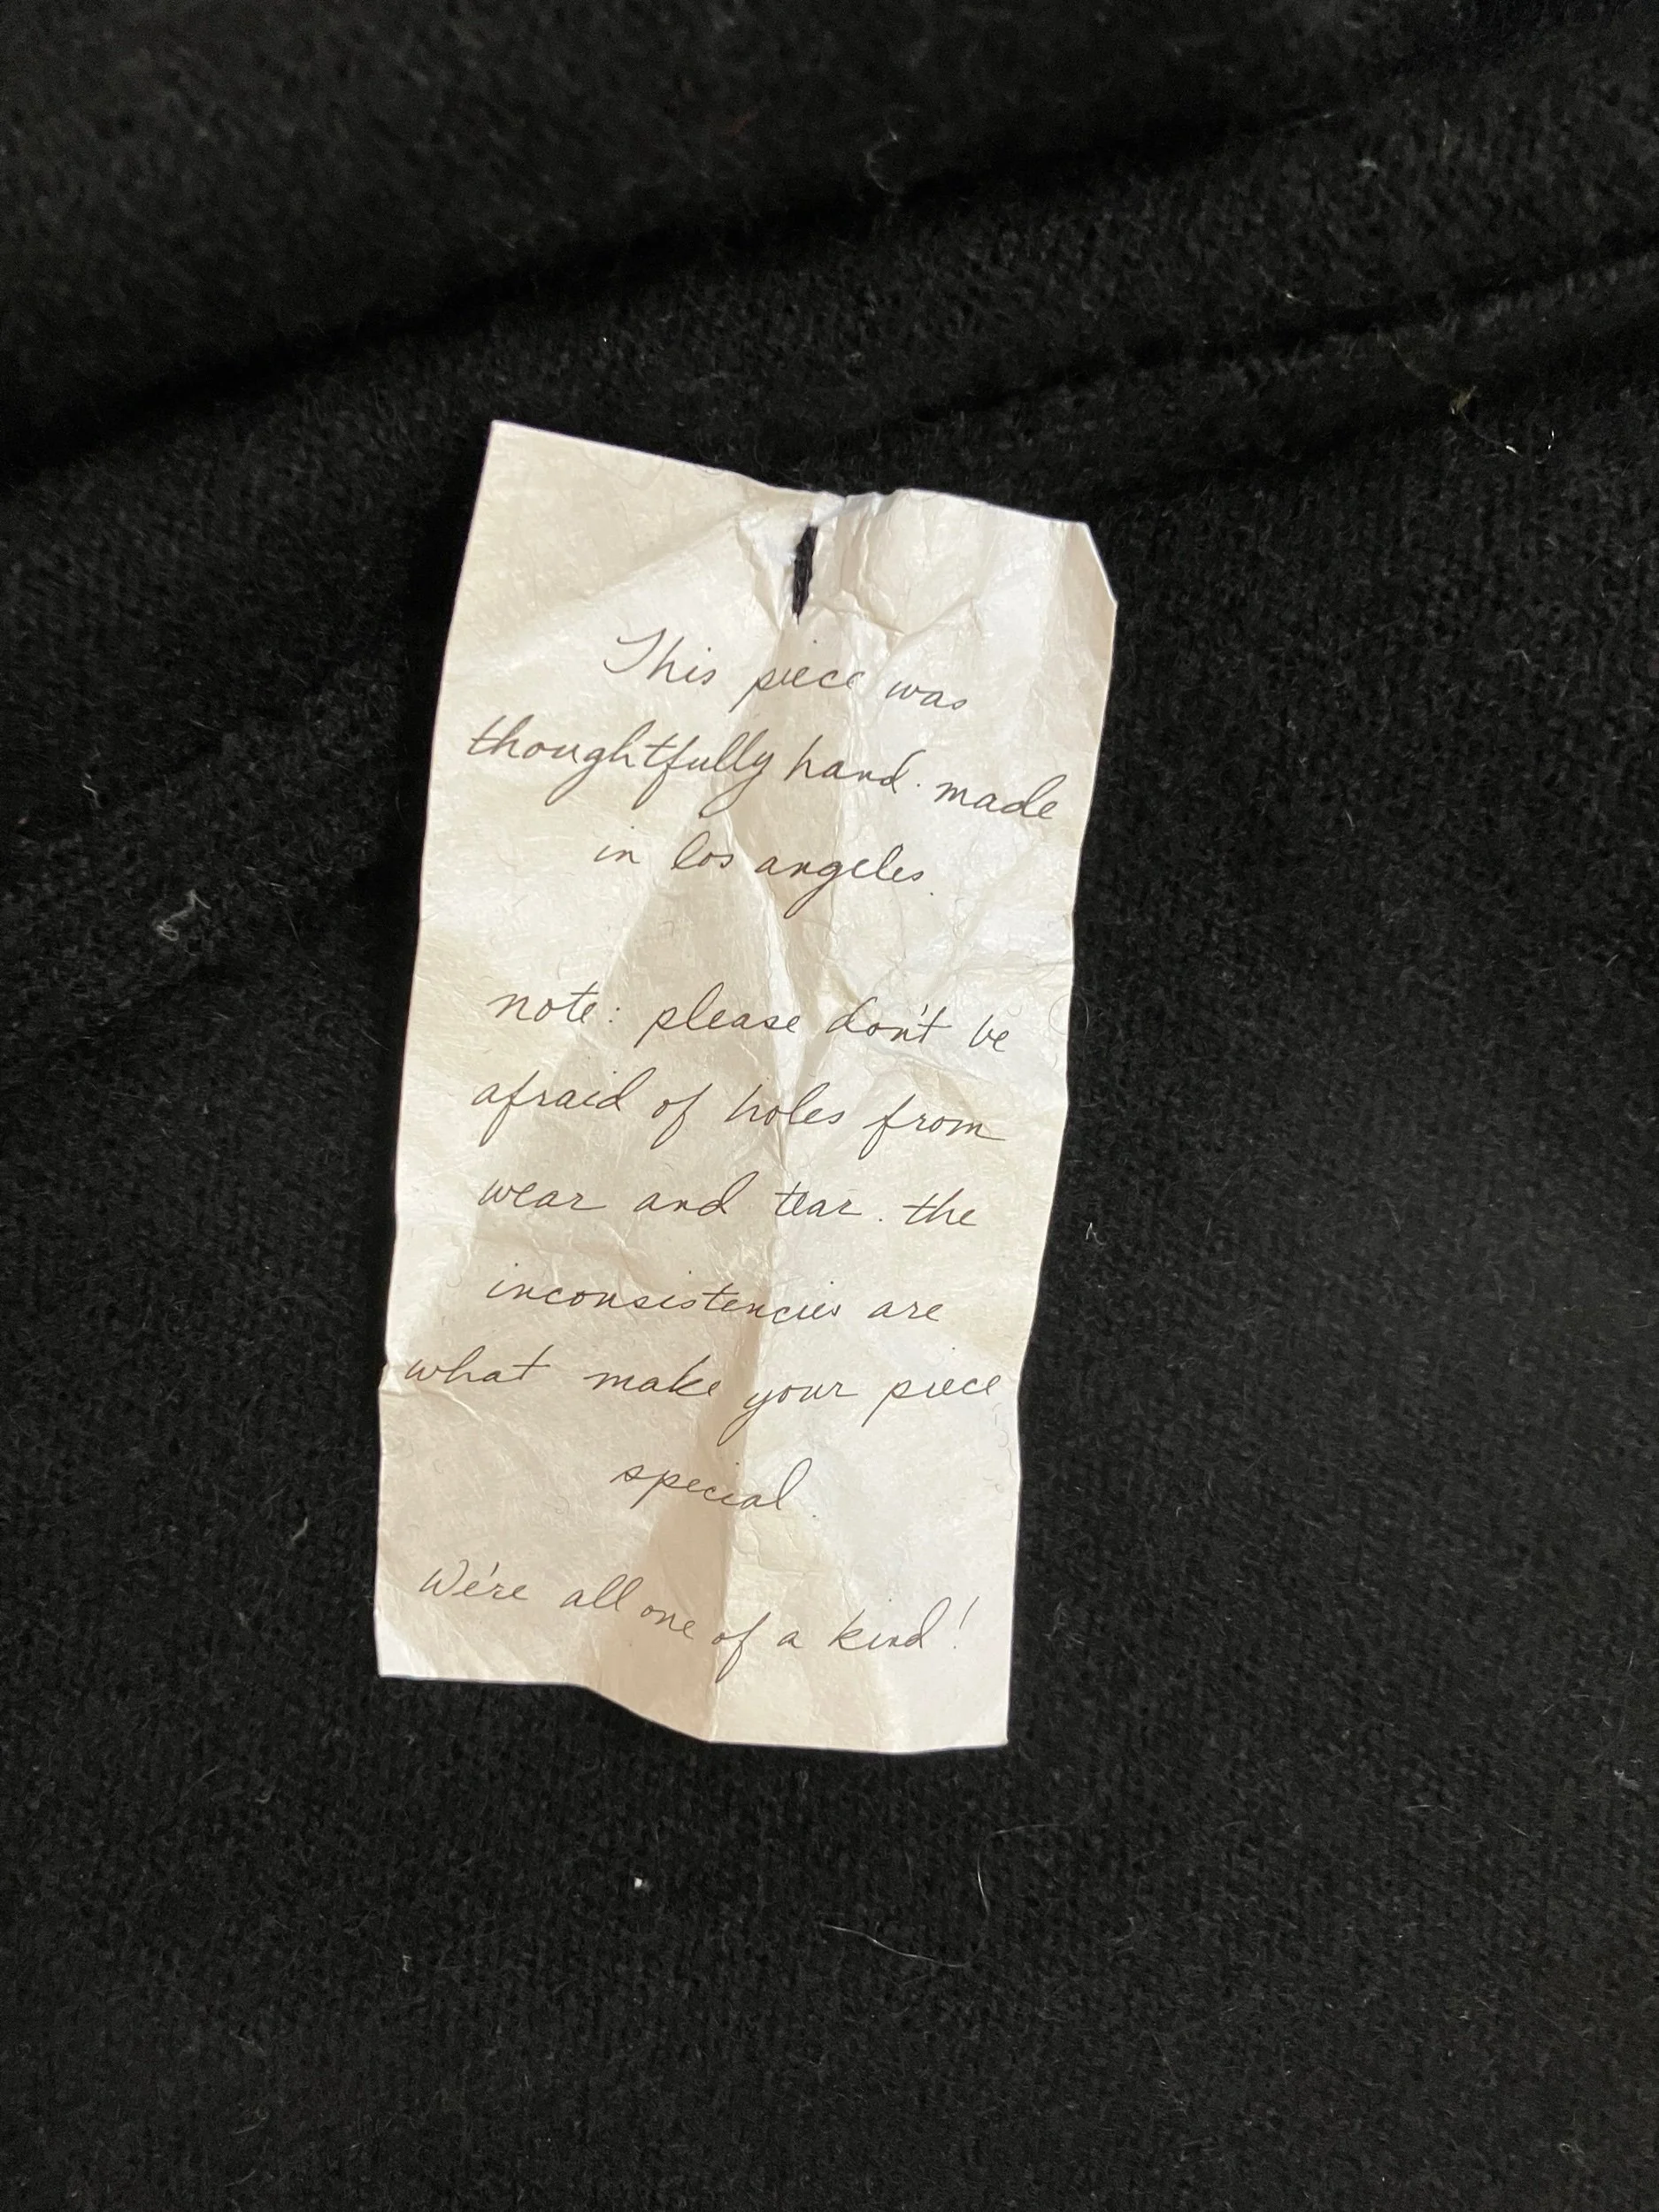 This piece was
thoughtfully hand-made
in los angeles.
note: please don't be
afraid of holes from
wear and tear. the
inconsistencies are
what make your piece
special.
We're all one of a kind!